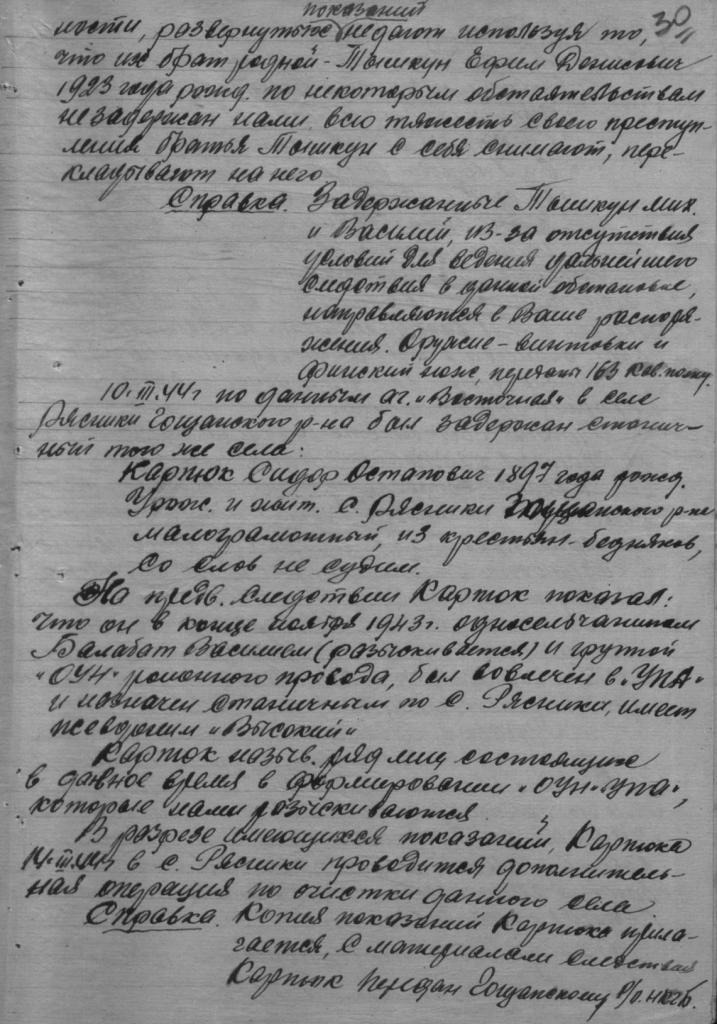 показаний
30
ности, развернутых не дают используя то,
что их брат родной - Тышкун Ефим Денисович
1923 года рожд. по некоторым обстаятельствам
не задержан нами, всю тяжесть своего преступ-
ления братья Тышкун с себя снимают, пере-
кладывают на него
Справка. Задержанные Тышкун Мих.
и Василий, из-за отсутствия
условий для ведения дальнейшего
следствия в данной обстановке,
направляются в Ваше распоря-
жения. Оружие - винтовки и
финский нож, переданы 163 кав. полку.
10.III.44г по данным аг. "Восточная" в селе
Рясники Гощанского р-на был задержан станич-
ный того же села:
Карпюк Сидор Остапович 1897 года рожд.
Урож. и жит. с. Рясники Гощанского р-на
малограмотный, из крестьян-бедняков,
со слов не судим.
На предв. следствии Карпюк показал:
что он в конце ноября 1943г. односельчанином
Балабат Василием (разыскивается) и группой
"ОУН" районного провода, был вовлечен в "УПА"
и назначен станичным по с. Рясники, имеет
псевдоним "Высокий"
Карпюк назыв. ряд лиц состоящие
в данное время в формировании "ОУН-УПА",
которые нами разыскиваются
В разрезе имеющихся показаний, Карпюка
14.III.44г в с. Рясники проводится дополнитель-
ная операция по очистки данного села
Справка. Копия показаний Карпюка прила-
гается, с материалами следствия
Карпюк передан Гощанскому Р/О. НКГБ.